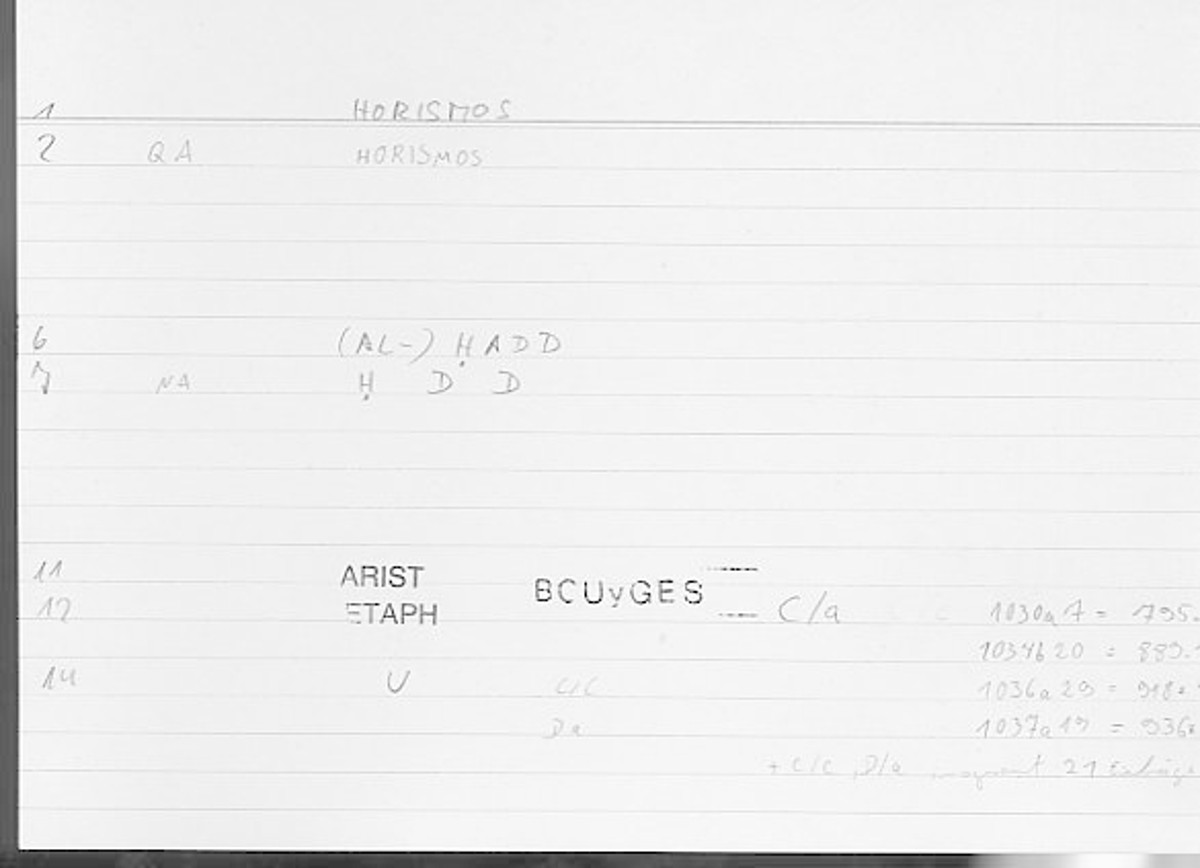 1 HORISMOS
2 QA HORISMOS
6 (AL-) ḤADD
7 NA Ḥ D D
11 ARIST BCUyGES
12 ETAPH C/a 1030a7 = 795.
1034b20 = 889.
14 U C/C 1036a29 = 918.
Da 1037a19 = 936.
+ C/C, D/a insgesamt 21